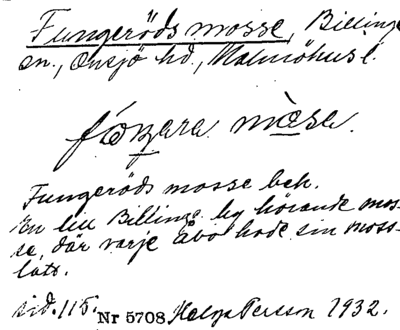 Fungeröds mosse, Billinge
sn., Onsjö hd., Malmöhus l.
Fungeröds mosse bek.
En till Billinge by hörande mos-
se, där varje åbo hade sin moss-
lott.
sid. 115. Nr 5708 Helge Persson 1932.